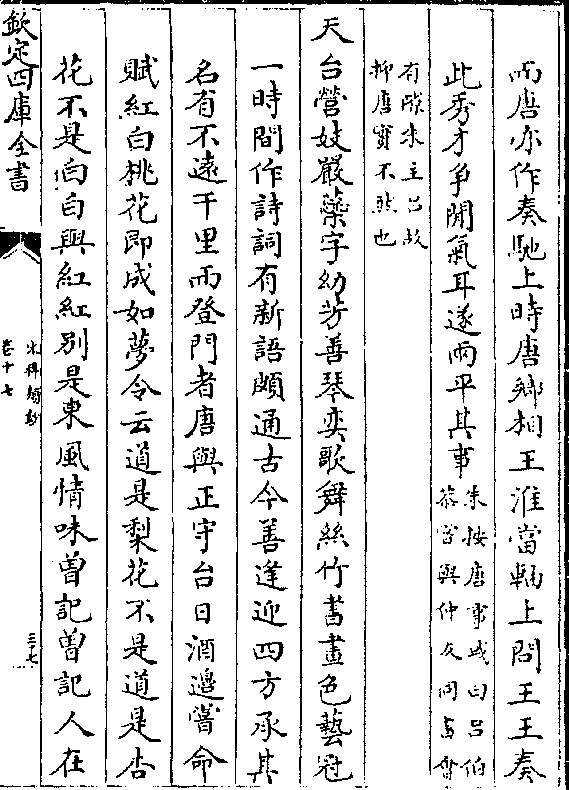 而唐亦作奏馳上時唐鄉相王淮當軸上問王王奏
此秀才爭閒氣耳遂兩平其事
朱按唐事或曰吕伯
恭嘗與仲友同書會
有隙朱主吕故
抑唐實不然也
天台營妓嚴蘂字幼芳善琴奕歌舞絲竹書畫色藝冠
一時間作詩詞有新語頗通古今善逢迎四方承其
名有不遠千里而登門者唐與正守台日酒邊嘗命
賦紅白桃花即成如夢令云道是梨花不是道是杏
花不是白白與紅紅別是東風情味曾記曾記人在
欽定四庫全書
宋稗類鈔
卷十七
三十七